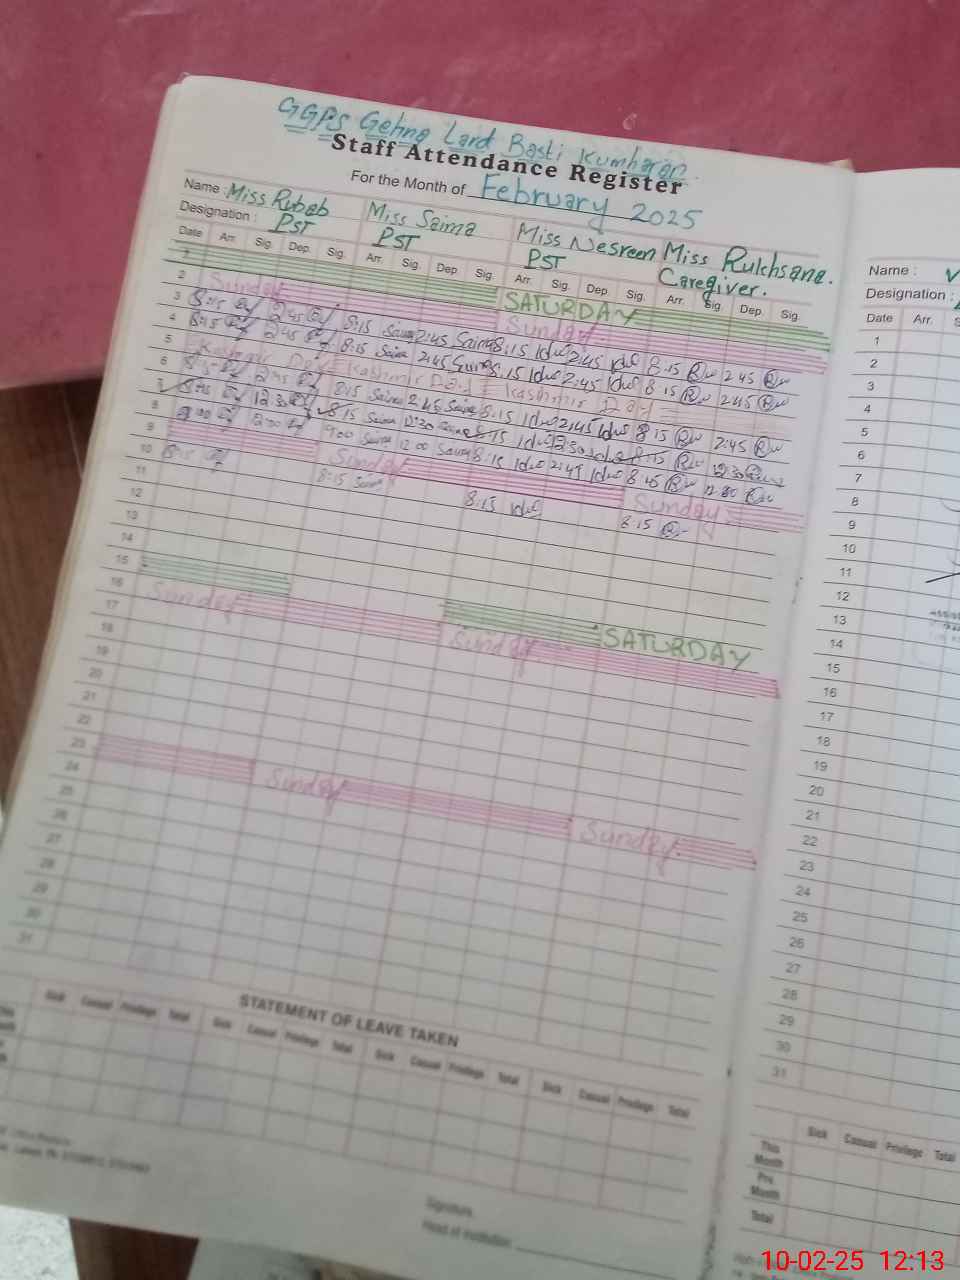 GGPS Gehna Lard Basti Kumharan.
Staff Attendance Register
For the Month of February 2025
Name : Miss Rubab Miss Saima Miss Nesreen Miss Rukhsana.
Designation : PST PST PST Caregiver.
Date Arr. Sig. Dep. Sig. Arr. Sig. Dep. Sig. Arr. Sig. Dep. Sig. Arr. Sig. Dep. Sig.
1 SATURDAY
2 Sunday Sunday
3 8:15 2:45 8:15 Saima 2:45 Saima 8:15 2:45 8:15 2:45
4 8:15 2:45 8:15 Saima 2:45 Saima 8:15 2:45 8:15 2:45
5 Kashmir Day Kashmir Day Kashmir Day
6 8:15 2:45 8:15 Saima 2:45 Saima 8:15 2:45 8:15 2:45
7 12:30 8:15 Saima 12:30 Saima 8:15 12:30 8:15 12:30
8 9:00 12:00 9:00 Saima 12:00 Saima 8:15 2:45 8:45
9 Sunday Sunday
10 8:15 8:15 Saima 8:15 8:15
11
12
13
14
15 SATURDAY
16 Sunday Sunday
17
18
19
20
21
22
23 Sunday Sunday
24
25
26
27
28
29
30
31
STATEMENT OF LEAVE TAKEN
Sick Casual Privilege Total Sick Casual Privilege Total Sick Casual Privilege Total Sick Casual Privilege Total
Signature
Head of Institution
Name :
Designation :
Date Arr.
1
2
3
4
5
6
7
8
9
10
11
12
13
14
15
16
17
18
19
20
21
22
23
24
25
26
27
28
29
30
31
Sick Casual Privilege Total
This Month
Pre. Month
Total
10-02-25 12:13